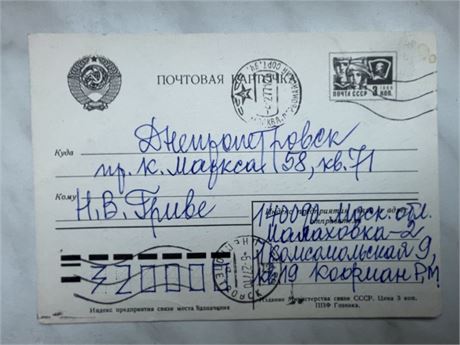 ПОЧТОВАЯ КАРТОЧКА
ПОЧТА СССР 3 КОП.
Куда
Днепропетровск
пр. К. Маркса 58, кв. 71
Кому
Н. В. Гриве
Индекс предприятия связи и адрес отправителя
Моск. обл.
Малаховка-2
Комсомольская 9,
кв 19 Кофман Р.М.
320000
Индекс предприятия связи места назначения
Издание Министерства связи СССР. Цена 3 коп.
ППФ Гознака.